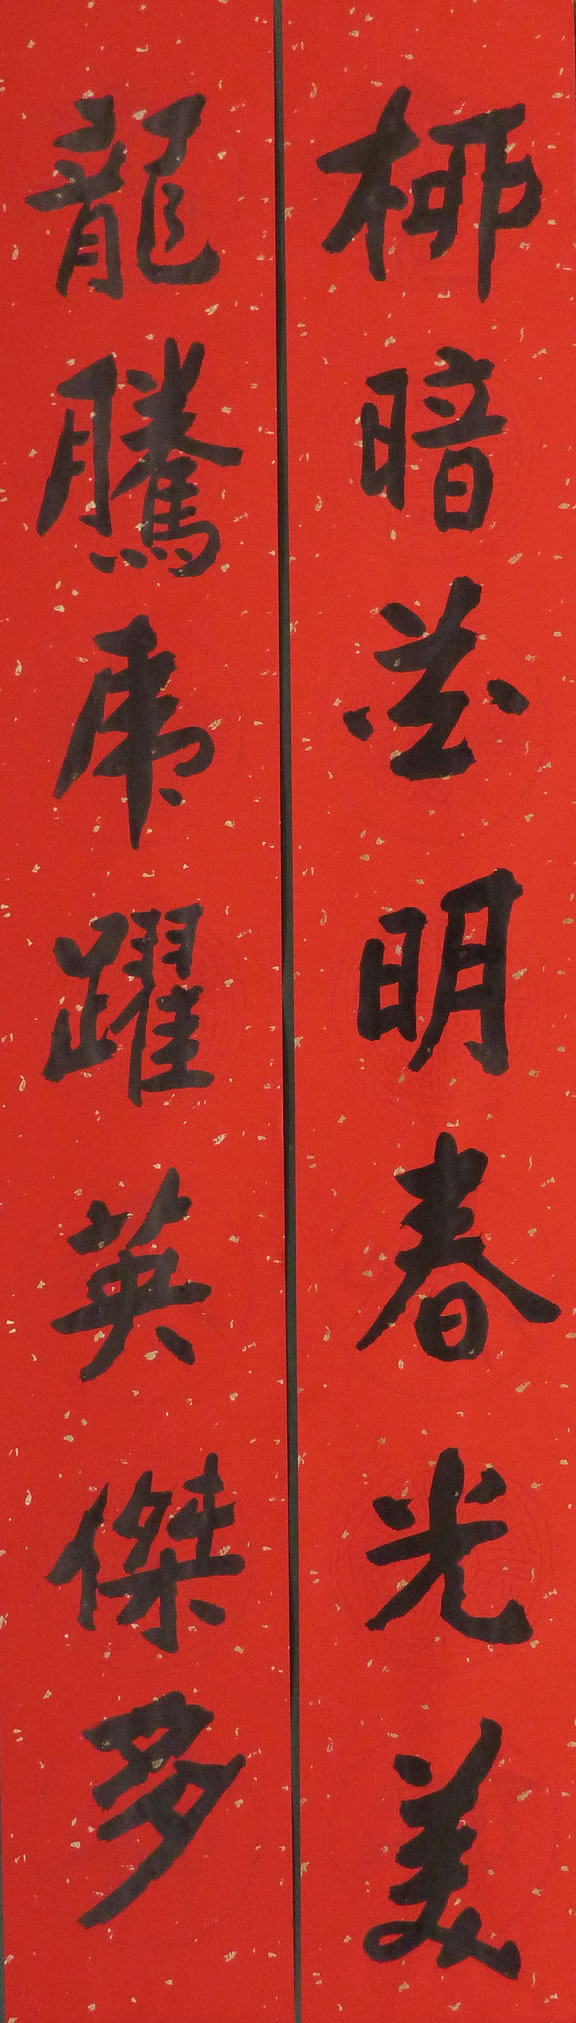 柳暗花明春光美
龍騰虎躍英傑多